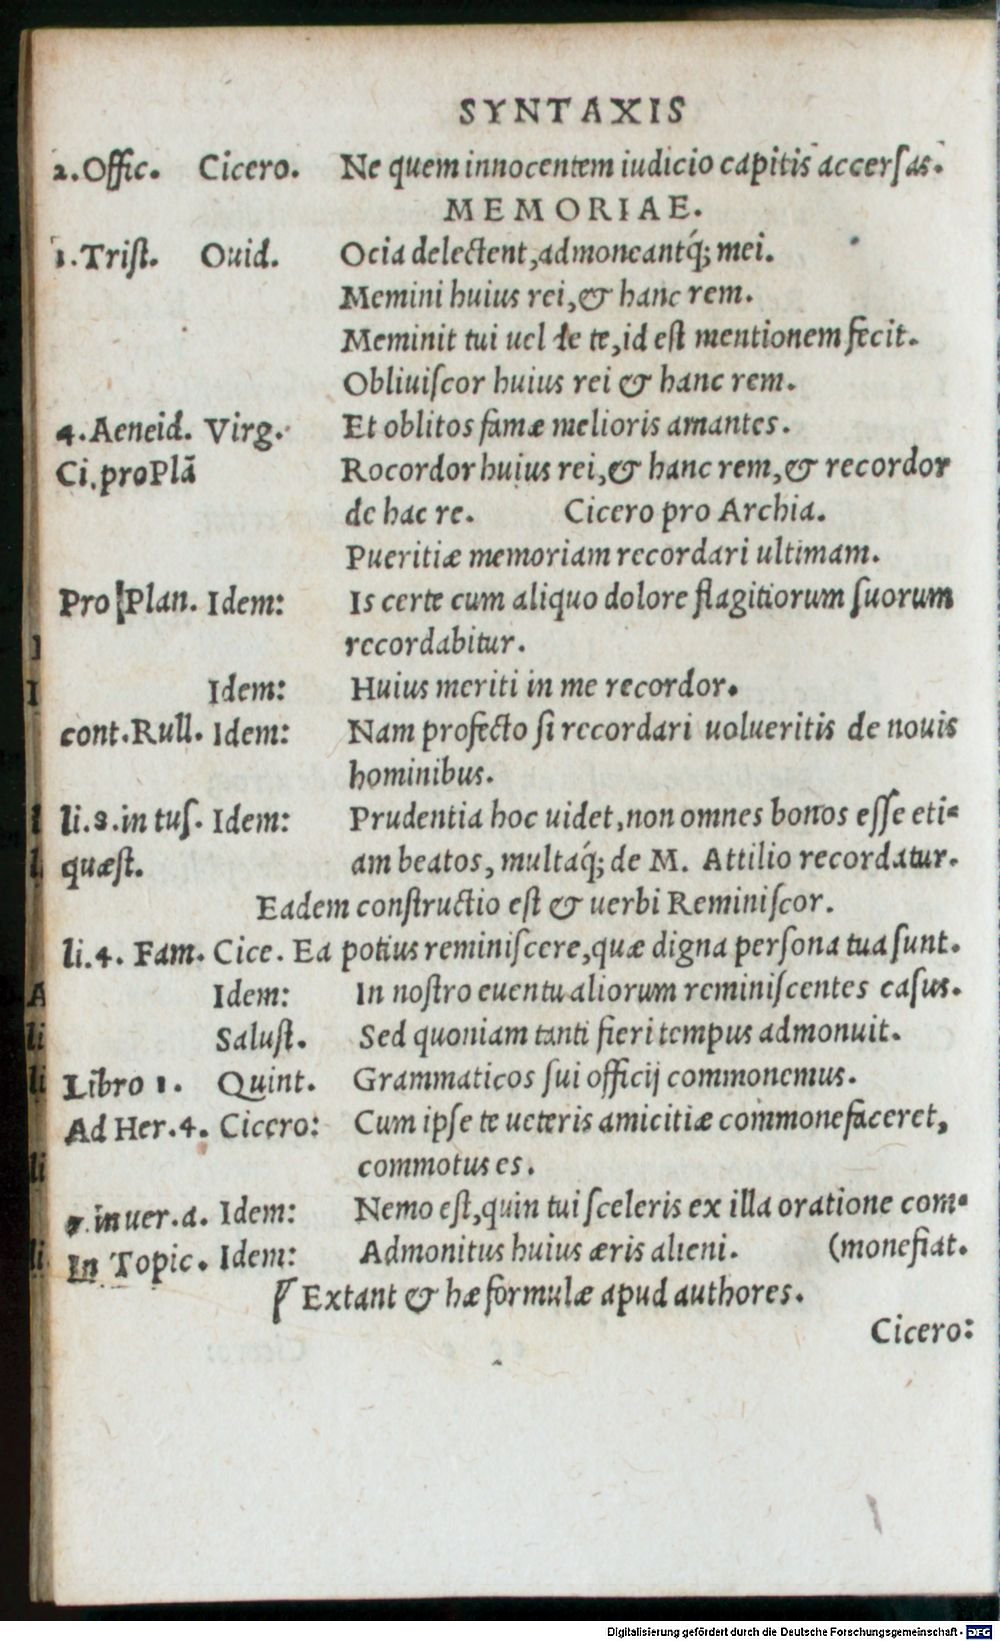 SYNTAXIS
2.Offic. Cicero. Ne quem innocentem iudicio capitis accersas.
MEMORIAE.
1.Trist. Ouid. Ocia delectent, admoneantq́; mei.
Memini huius rei, & hanc rem.
Meminit tui uel de te, id est mentionem fecit.
Obliuiscor huius rei & hanc rem.
4.Aeneid. Virg. Et oblitos famæ melioris amantes.
Ci.proPlā Rocordor huius rei, & hanc rem, & recordor
de hac re. Cicero pro Archia.
Pueritiæ memoriam recordari ultimam.
Pro Plan. Idem: Is certe cum aliquo dolore flagitiorum suorum
recordabitur.
Idem: Huius meriti in me recordor.
cont.Rull. Idem: Nam profecto si recordari uolueritis de nouis
hominibus.
li.3.in tus. Idem: Prudentia hoc uidet, non omnes bonos esse eti=
quæst. am beatos, multaq́; de M. Attilio recordatur.
Eadem constructio est & uerbi Reminiscor.
li.4. Fam. Cice. Ea potius reminiscere, quæ digna persona tua sunt.
Idem: In nostro euentu aliorum reminiscentes casus.
Salust. Sed quoniam tanti fieri tempus admonuit.
Libro 1. Quint. Grammaticos sui officij commonemus.
Ad Her.4. Cicero: Cum ipse te ueteris amicitiæ commonefaceret,
commotus es.
in uer.a. Idem: Nemo est, quin tui sceleris ex illa oratione com=
In Topic. Idem: Admonitus huius æris alieni. (monefiat.
Extant & hæ formulæ apud authores.
Cicero:
Digitalisierung gefördert durch die Deutsche Forschungsgemeinschaft - DFG